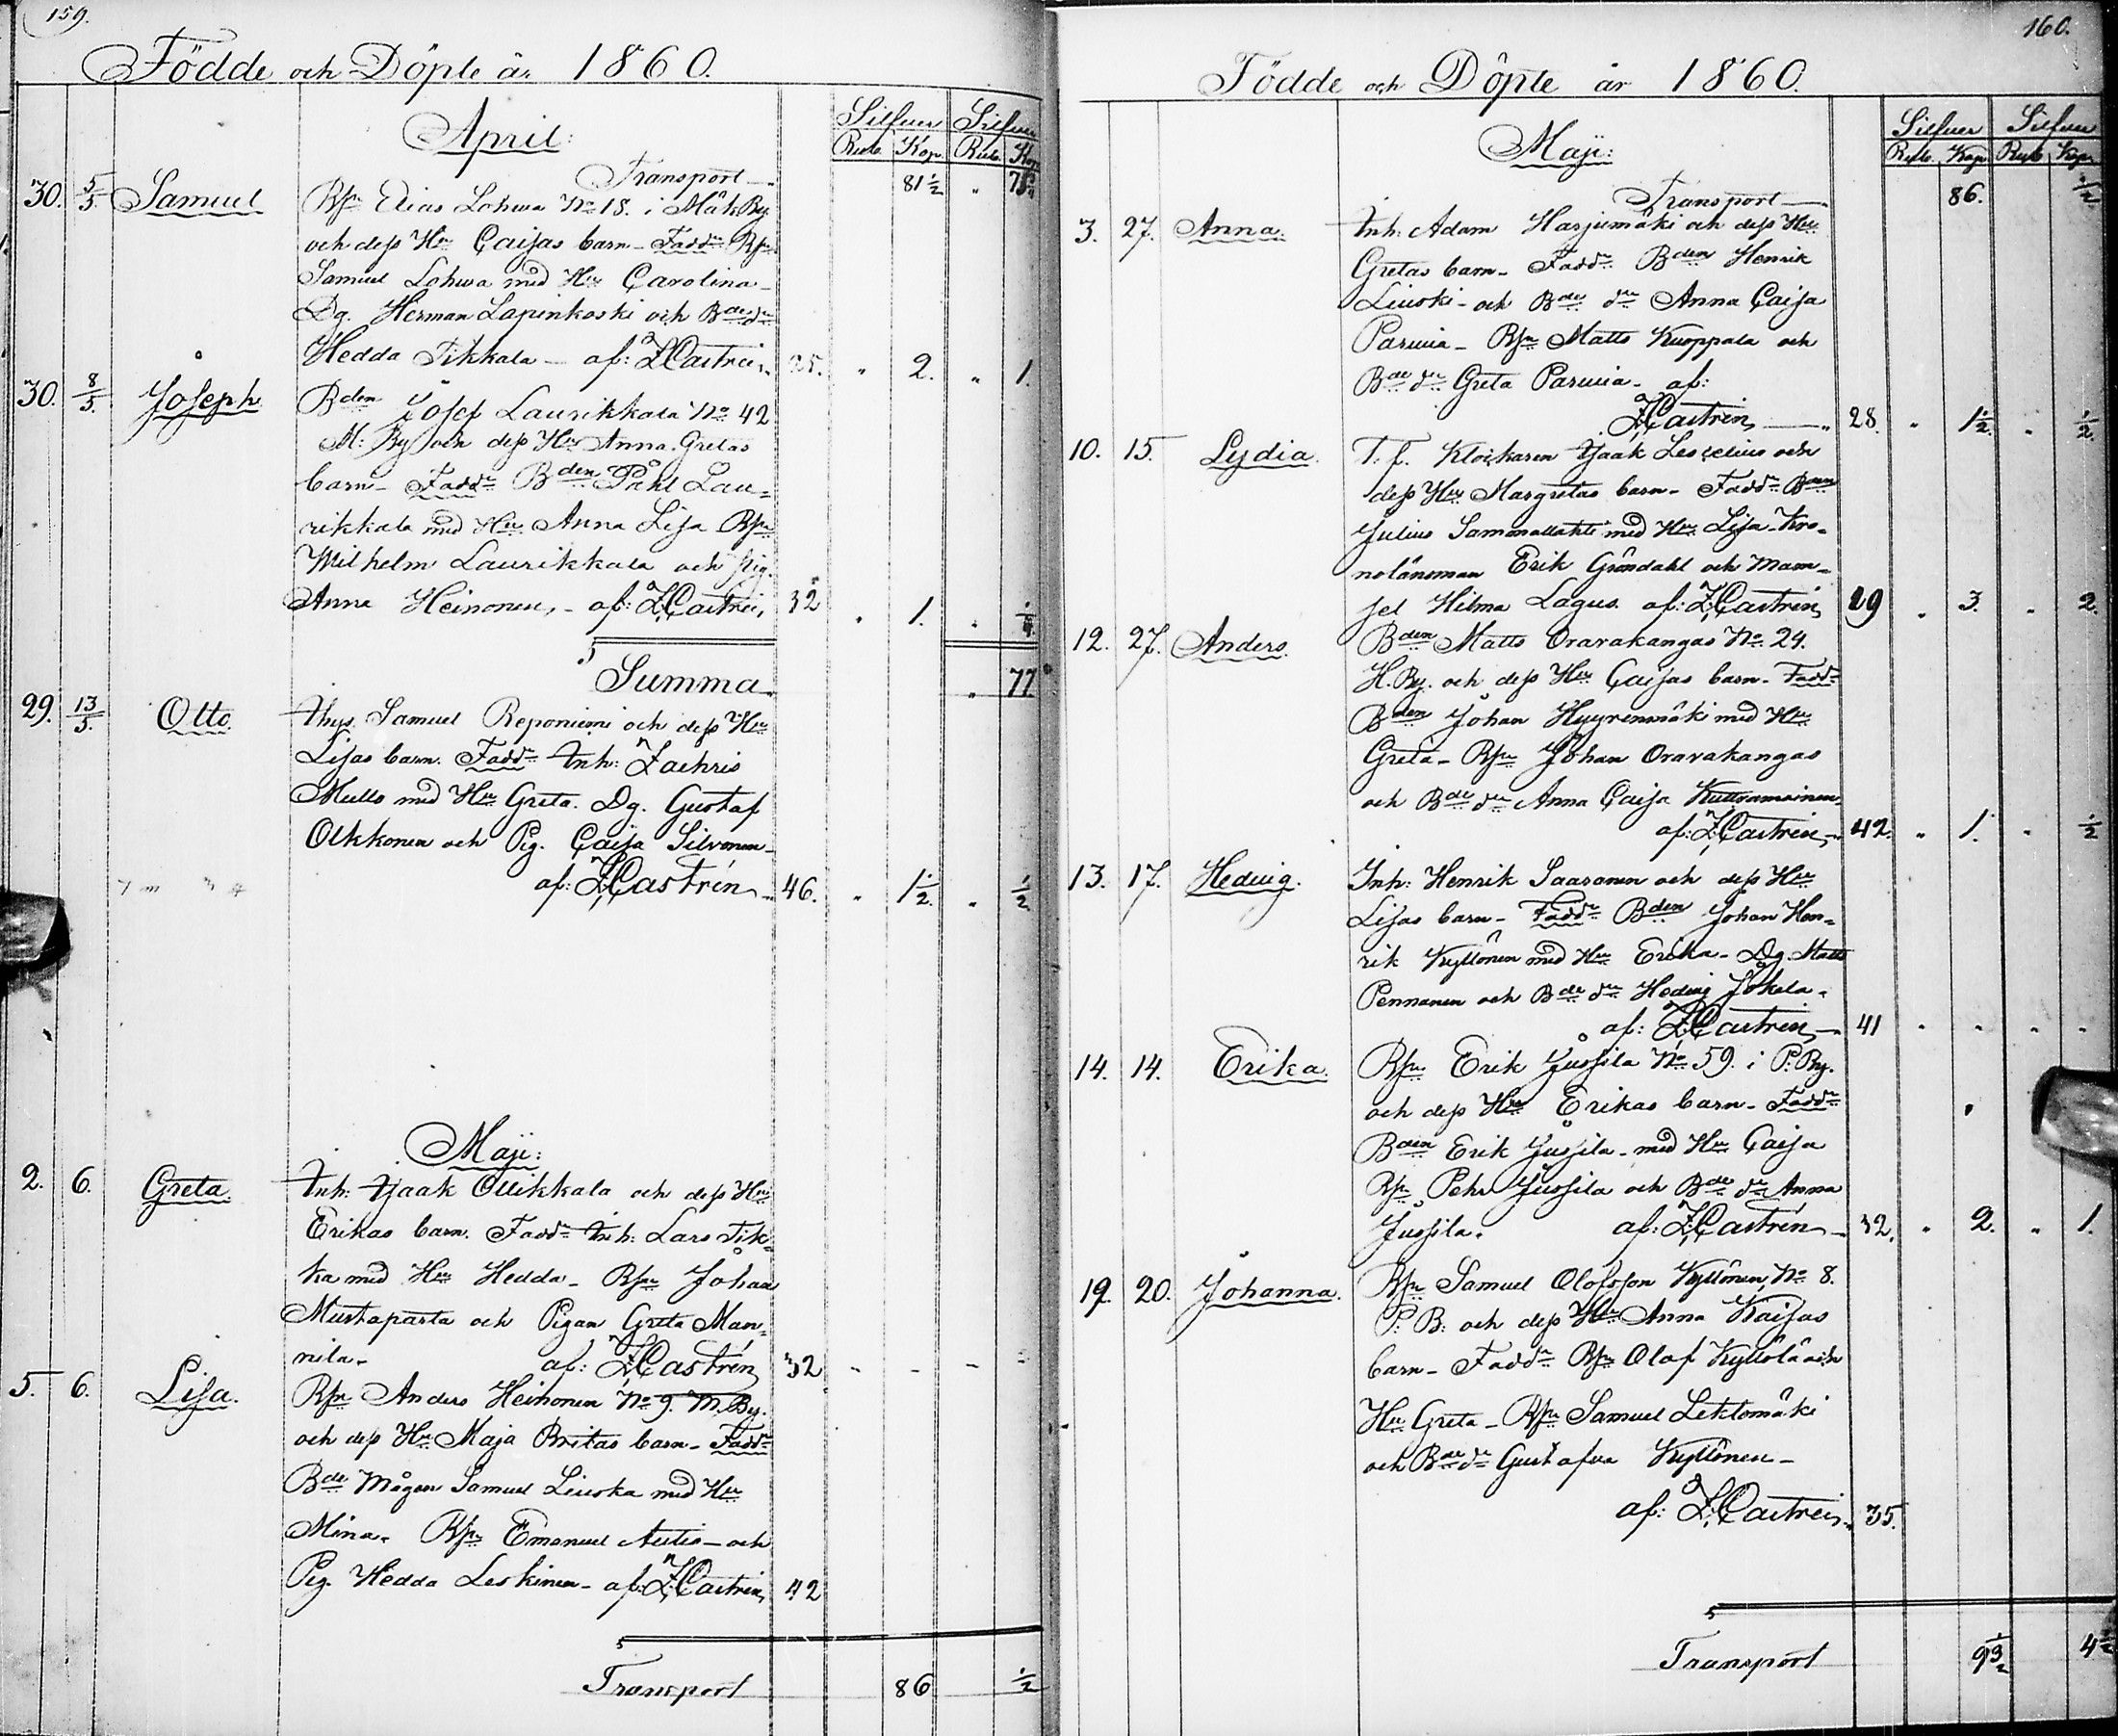 159.
Födde och Döpte år 1860.
April:
Silfver Silfver
Rub. Kop. Rub. Kop.
Transport 81½ " 75¾
30. 5/5. Samuel Bpr Elias Lohwa No 18. i Mäk. By.
och dess Hu Cajsas barn_ Faddr Bpr
Samuel Lohwa med Hu Carolina_
Dg. Herman Lapinkoski och Bde dr
Hedda Tikkala _ af: Z. Castrén 25. " 2. " 1.
30. 8/5. Joseph Bden Josef Laurikkala No 42
M: By och dess Hu Anna Gretas
barn_ Faddr Bden Påhl Lau=
rikkala med Hu Anna Lisa Bpr
Wilhelm Laurikkala och Pig.
Anna Heinonen,_ af: Z. Castrén, 32 " 1. "
Summa. " 77
29. 13/5. Otto. Ihys. Samuel Reponiemi och dess Hu
Lisas barn. Faddr Inh: Zachris
Mullo med Hu Greta. Dg. Gustaf
Olkkonen och Pig. Cajsa Silvonen_
af: Z. Castrén 46. " 1½. " ½
Maji:
2. 6. Greta. Inh: Isaak Ollikkala och dess Hu
Erikas barn. Faddr Inh: Lars Tik=
ka med Hu Hedda_ Bpr Johan
Mustaparta och Pigan Greta Man=
nila. af: Z. Castrén 32 " " " "
5. 6. Lisa. Bpr Anders Heinonen No 9. M. By.
och dess Hu Maja Britas barn_ Faddr
Bde Mågen Samuel Liuska med Hu
Mina. Bpr Emanuel Autio_ och
Pig. Hedda Leskinen_ af: Z. Castrén, 42
Transport 86 ½
160.
Födde och Döpte år 1860.
Maji:
Silfver Silfver
Rub. Kop. Rub. Kop.
Transport 86. ½
3. 27. Anna. Inh: Adam Harjumäki och dess Hu
Gretas barn_ Faddr Bden Henrik
Liuski_ och Bde dr Anna Cajsa
Parvia_ Bpr Matts Kuoppala och
Bde dr Greta Parvia_ af:
Z. Castrén 28. " 1½. " ½
10. 15. Lydia. T. f. Klockaren Isaak Lescelius och
dess Hu Margretas barn_ Faddr Bden
Julius Sammallahti med Hu Lisa_ Kro=
nolänsman Erik Gröndahl och Mam=
sel Hilma Lagus. af: Z. Castrén, 29 " 3. " 2.
12. 27. Anders. Bden Matts Oravakangas No 24.
H. By. och dess Hu Cajsas barn_ Faddr
Bden Johan Hyyrenmäki med Hu
Greta_ Bpr Johan Oravakangas
och Bde dr Anna Cajsa
af: Z. Castrén 42. " 1. " ½
13. 17. Hedvig. Inh: Henrik Saaranen och dess Hu
Lisas barn_ Faddr Bden Johan Hen=
rik Kyllönen med Hu Erika_ Dg. Matts
Pennanen och Bde dr Hedvig Jokela.
af: Z. Castrén 41 " " " "
14. 14. Erika. Bpr Erik Jussila No 59. i P. By.
och dess Hu Erikas barn_ Faddr
Bden Erik Jussila_ med Hu Cajsa
Bpr Pehr Jussila och Bde dr Anna
Jussila. af: Z. Castrén 32. " 2. " 1.
19. 20. Johanna. Bpr Samuel Olofsson Kyllönen, No 8.
P: B: och dess Hu Anna Kaisas
barn_ Faddr Bpr Olof Kyllölä och
Hu Greta_ Bpr Samuel Lehtomäki
och Bde dr Gustafva Kyllönen_
af: Z. Castrén. 35.
Transport 93½ 4½